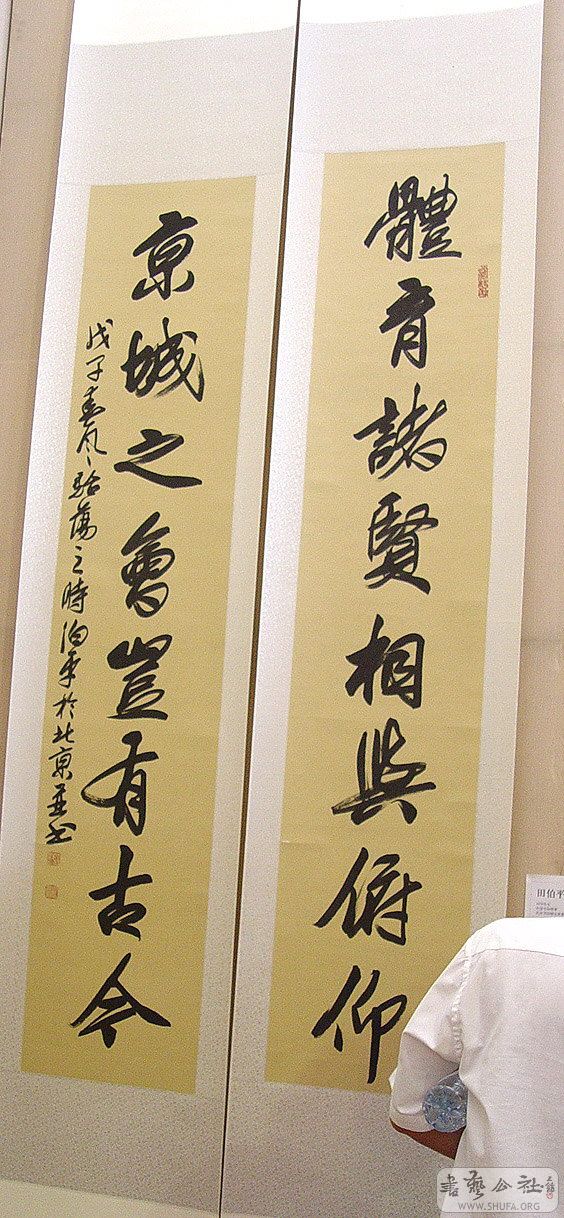 體育諸賢相與俯仰
京城之會豈有古今
戊子春風駘蕩之時伯平於北京并書
田伯平
書藝公社
WWW.SHUFA.ORG